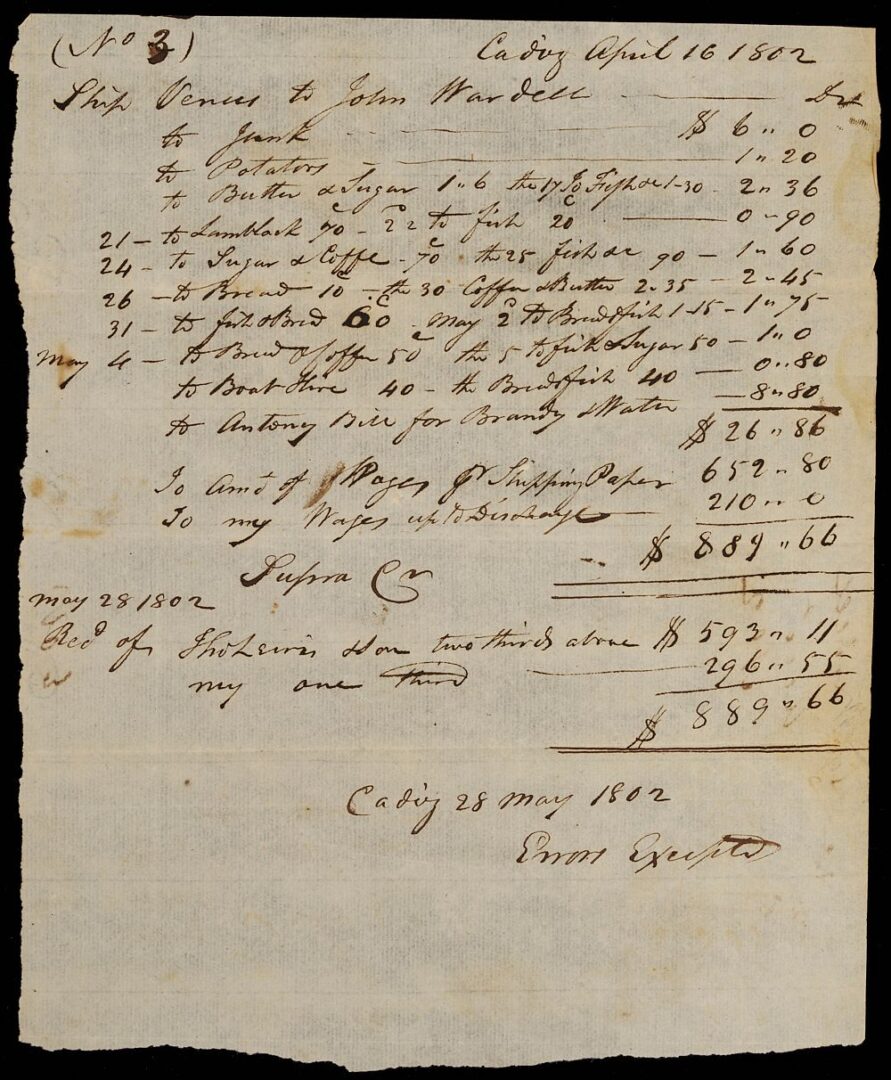 (No 3)
Cadiz April 16 1802
Ship Venus to John Wardell Dr
to Junk $ 6 " 0
to Potatos 1 " 20
to Butter & Sugar 1 " 6 the 17 To Fish &c 1-30 - 2 " 36
21 - to Lamblack 70 - 22 to fish 20 0 " 90
24 - to Sugar & Coffe - 70 the 25 fish &c 90 - 1 " 60
26 - to Bread 10 - the 30 Coffee & Butter 2 " 35 - 2 " 45
31 - to fish & Bred 60 - May 2 to Bread & fish 1-15 - 1 " 75
May 4 - to Bread & Coffee 50 the 5 to fish & Sugar 50 - 1 " 0
to Boat Hire 40 - the Bred & fish 40 - 0 " 80
to Antony Bill for Brandy & Water - 8 " 80
$ 26 " 86
To Amt of Wages pr Shipping Paper 652 " 80
To my Wages up to Discharge 210 " 0
$ 889 " 66
Supra Cr
May 28 1802
Recd of Tho Lewis & Son two thirds above $ 593 " 11
my one third 296 " 55
$ 889 " 66
Cadiz 28 May 1802
Errors Excepted